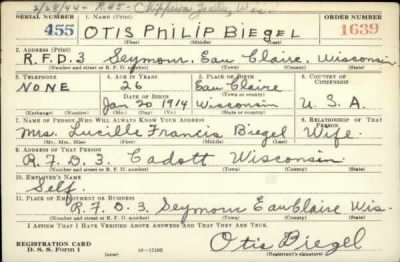 2/28/44 - R#5 - Chippewa Falls, Wis.
SERIAL NUMBER 1. NAME (Print) ORDER NUMBER
455 OTIS PHILIP BIEGEL 1639
(First) (Middle) (Last)
2. ADDRESS (Print)
R.F.D. 3 Seymour, Eau Claire, Wisconsin
(Number and street or R. F. D. number) (Town) (County) (State)
3. TELEPHONE 4. AGE IN YEARS 5. PLACE OF BIRTH 6. COUNTRY OF CITIZENSHIP
NONE 26 Eau Claire
DATE OF BIRTH (Town or county)
Jan 20 1914 Wisconsin U.S.A.
(Exchange) (Number) (Mo.) (Day) (Yr.) (State or country)
7. NAME OF PERSON WHO WILL ALWAYS KNOW YOUR ADDRESS 8. RELATIONSHIP OF THAT PERSON
Mrs. Lucille Francis Biegel Wife
(Mr., Mrs., Miss) (First) (Middle) (Last)
9. ADDRESS OF THAT PERSON
R.F.D. 3. Cadott Wisconsin
(Number and street or R. F. D. number) (Town) (County) (State)
10. EMPLOYER'S NAME
Self.
11. PLACE OF EMPLOYMENT OR BUSINESS
R.F.D. 3. Seymour Eau Claire Wis.
(Number and street or R. F. D. number) (Town) (County) (State)
I AFFIRM THAT I HAVE VERIFIED ABOVE ANSWERS AND THAT THEY ARE TRUE.
REGISTRATION CARD
D. S. S. Form 1 16—17105 Otis Biegel
(Registrant's signature)